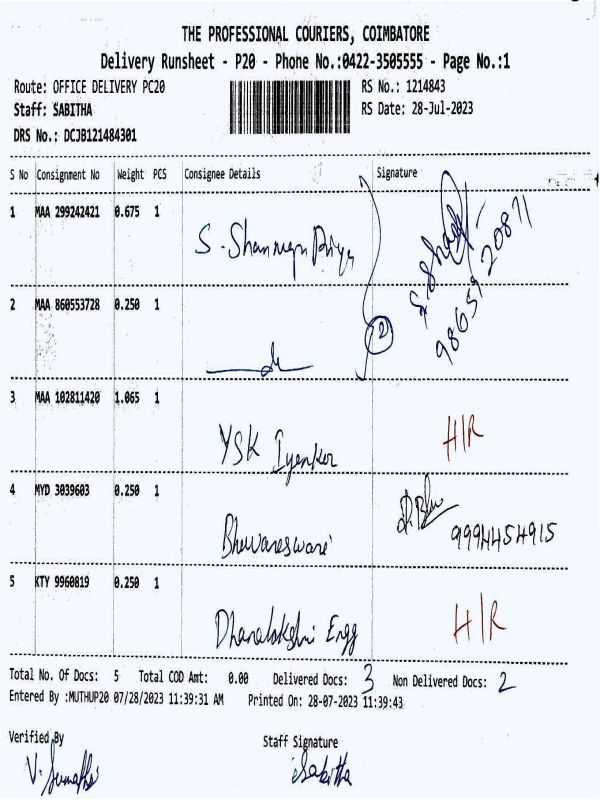 THE PROFESSIONAL COURIERS, COIMBATORE
Delivery Runsheet - P20 - Phone No.:0422-3505555 - Page No.:1
Route: OFFICE DELIVERY PC20 RS No.: 1214843
Staff: SABITHA RS Date: 28-Jul-2023
DRS No.: DCJB121484301
S No Consignment No Weight PCS Consignee Details Signature
1 MAA 299242421 0.675 1 S. Shanmuga Priya
9865920871
2 MAA 860553728 0.250 1 do (2)
3 MAA 102811420 1.065 1 YSK Iyenker H/R
4 MYD 3039603 0.250 1 Bhuvaneswari 9994454915
5 KTY 9960819 0.250 1 Dhanalakshmi Engg H/R
Total No. Of Docs: 5 Total COD Amt: 0.00 Delivered Docs: 3 Non Delivered Docs: 2
Entered By :MUTHUP20 07/28/2023 11:39:31 AM Printed On: 28-07-2023 11:39:43
Verified By Staff Signature
V. Sumathi Sabitha